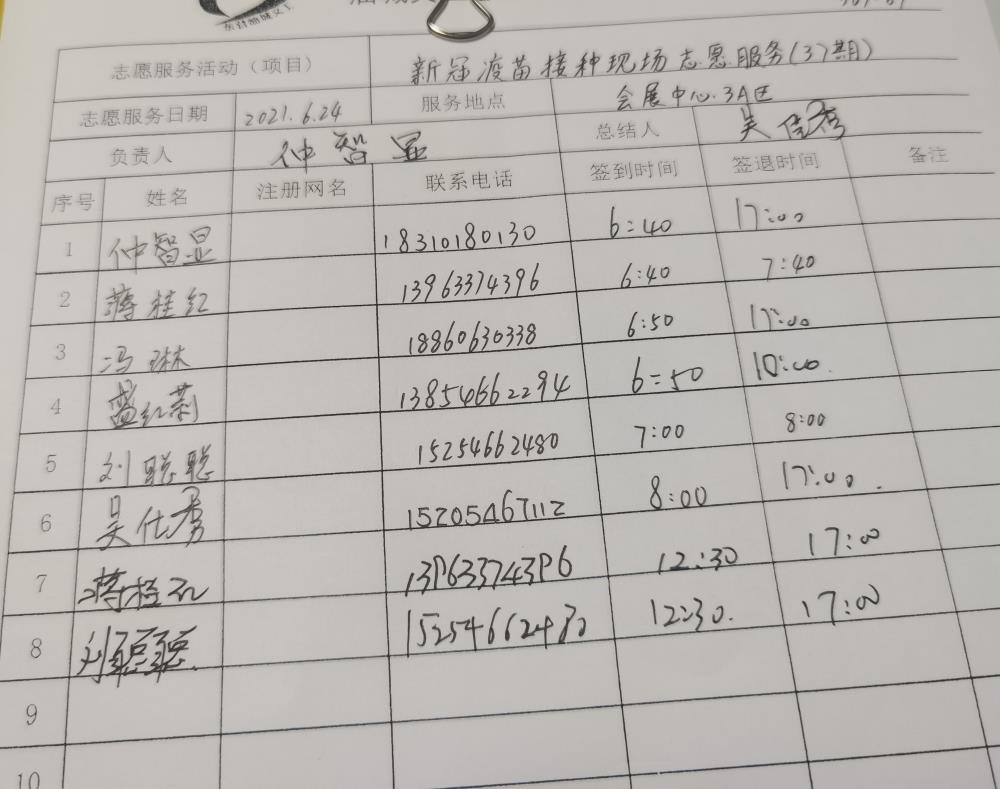 志愿服务活动（项目） 新冠疫苗接种现场志愿服务(37期)
志愿服务日期 2021.6.24 服务地点 会展中心.3A区
负责人 仲智显 总结人
序号 姓名 注册网名 联系电话 签到时间 签退时间 备注
1 仲智显 18310180130 6:40 17:00
2 蒋桂红 13963374396 6:40 7:40
3 冯琳 18860630338 6:50 17:00
4 盛红莉 13854662294 6:50 10:00
5 刘聪聪 15254662480 7:00 8:00
6 15205467112 8:00 17:00
7 蒋桂红 13963374396 12:30 17:00
8 刘聪聪 15254662480 12:30 17:00
9
10